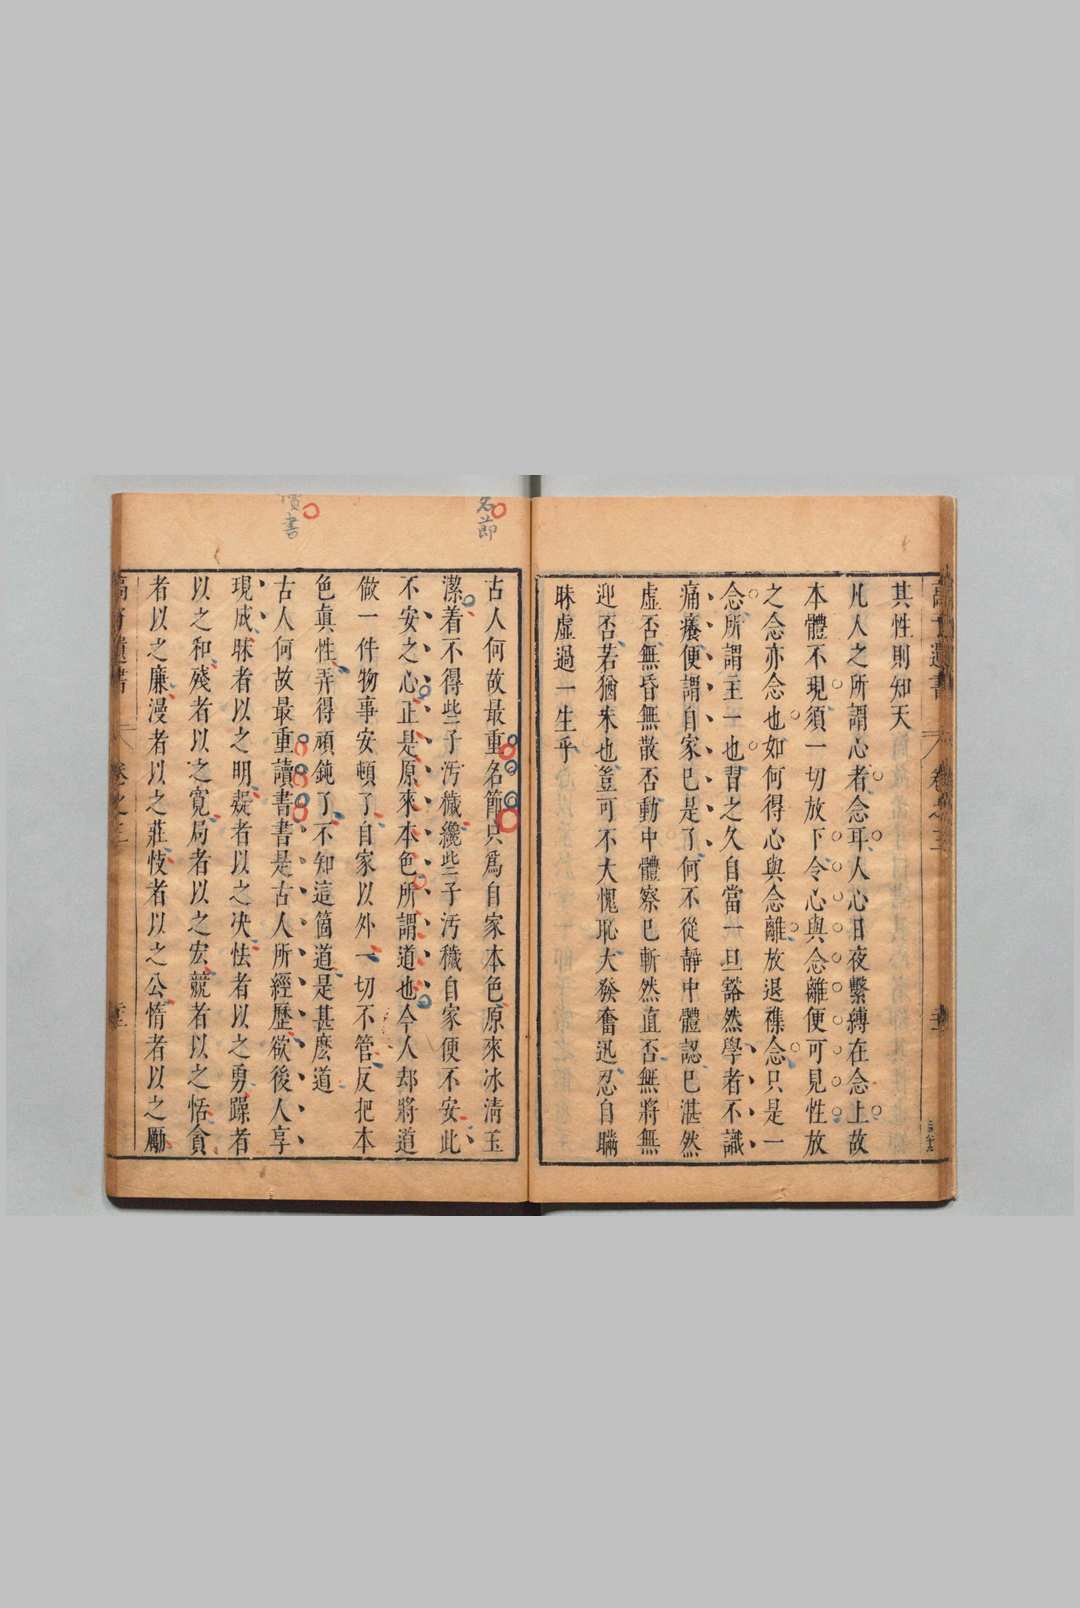 其性則知天
凡人之所謂心者念耳人心日夜繫縛在念上故
本體不現須一切放下令心與念離便可見性放
之念亦念也如何得心與念離放退雜念只是一
念所謂主一也習之久自當一旦豁然學者不識
痛癢便謂自家已是了何不從靜中體認已湛然
虛否無昏無散否動中體察已斬然直否無將無
迎否若猶未也豈可不大愧恥大發奮迅忍自瞞
昧虛過一生乎
名節
古人何故最重名節只爲自家本色原來冰清玉
潔着不得些子汚穢纔些子汚穢自家便不安此
不安之心正是原來本色所謂道也今人却將道
做一件物事安頓了自家以外一切不管反把本
色真性弄得頑鈍了不知這箇道是甚麽道
讀書
古人何故最重讀書書是古人所經歷欲後人享
現成昧者以之明疑者以之决怯者以之勇躁者
以之和殘者以之寬局者以之宏競者以之恬貪
者以之廉漫者以之莊忮者以之公惰者以之勵
卷之三